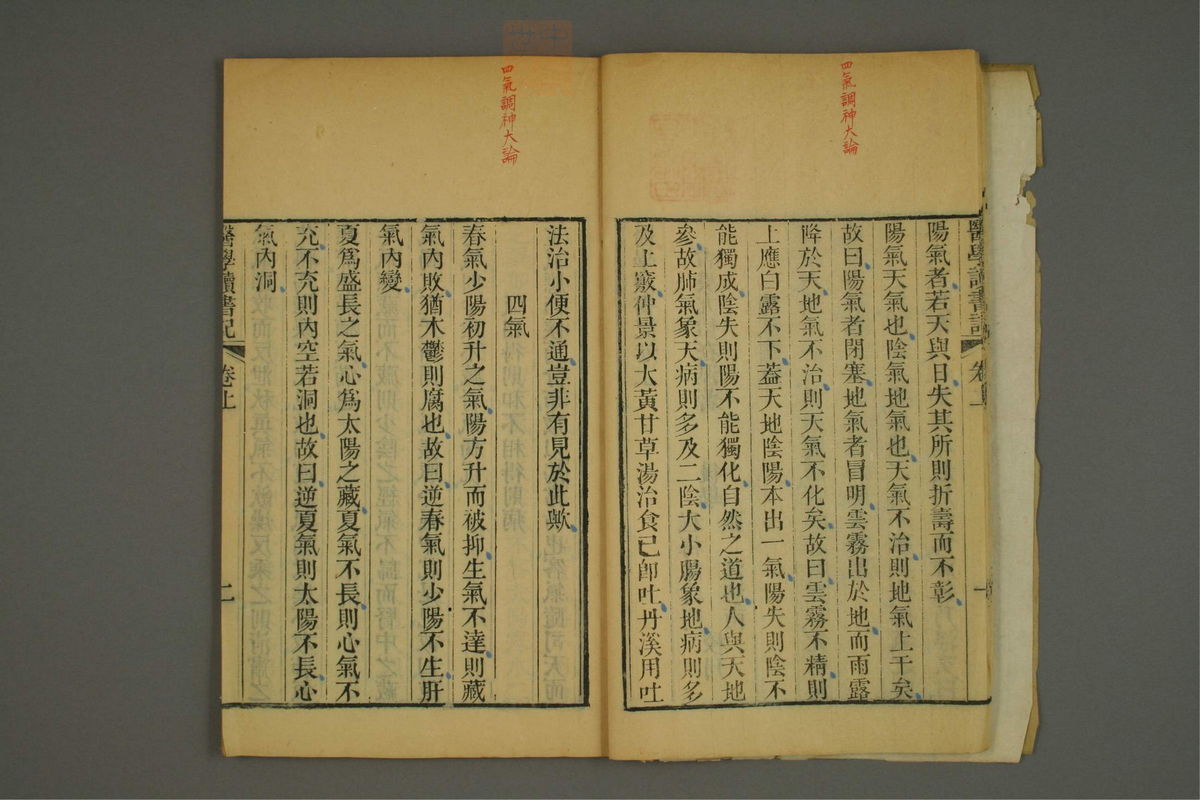 四氣調神大論
醫學讀書記 卷上
陽氣者若天與日失其所則折壽而不彰
陽氣天氣也陰氣地氣也天氣不治則地氣上干矣
故曰陽氣者閉塞地氣者冒明雲霧出於地而雨露
降於天地氣不治則天氣不化矣故曰雲霧不精則
上應白露不下蓋天地陰陽本出一氣陽失則陰不
能獨成陰失則陽不能獨化自然之道也人與天地
參故肺氣象天病則多及二陰大小腸象地病則多
及上竅仲景以大黃甘草湯治食已卽吐丹溪用吐
四氣調神大論
法治小便不通豈非有見於此歟
四氣
春氣少陽初升之氣陽方升而被抑生氣不達則藏
氣內敗猶木鬱則腐也故曰逆春氣則少陽不生肝
氣內變
夏爲盛長之氣心爲太陽之藏夏氣不長則心氣不
充不充則內空若洞也故曰逆夏氣則太陽不長心
氣內洞
醫學讀書記 卷上 二